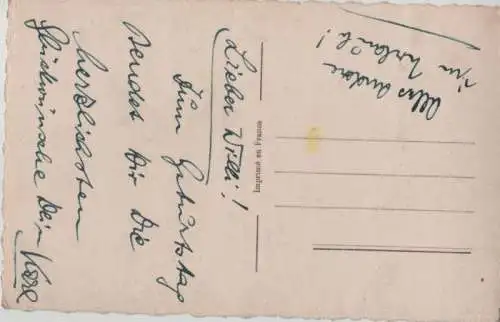 Lieber Willi!
Zum Geburtstag
sendet Dir Die
herzlichsten
Glückwünsche Dein Karl
Alles andere
im Urlaub!
Imprimé en France